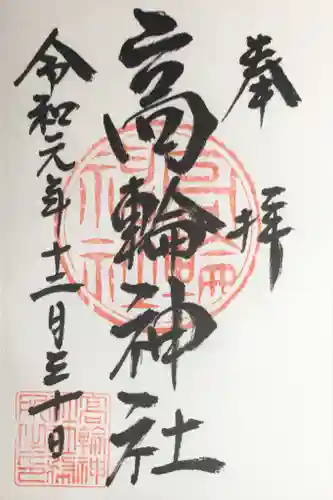 奉拝
高輪神社
令和元年十二月三十日
高輪神社